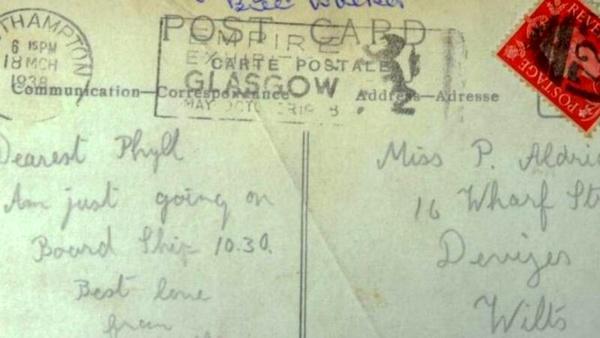 POST CARD
THAMPTON
6 15PM
18 MCH
1938
EMPIRE
CARTE POSTALE
GLASGOW
MAY OCTOBER 1938
Communication—Correspondance
Address—Adresse
POSTAGE
REVE
Dearest Phyll
Am just going on
Board Ship 10.30.
Best love
from
Miss P. Aldri
16 Wharf St
Devizes
Wilts